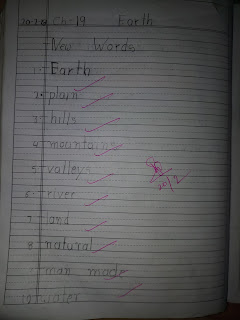 20-2-24 Ch-19 Earth
New Words
1. Earth
2. plain
3. hills
4. mountains
5. valleys
6. river
7. land
8. natural
9. man made
10. water
20/2